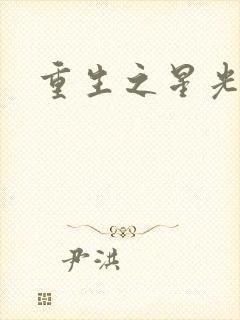 重生之星光
尹洪